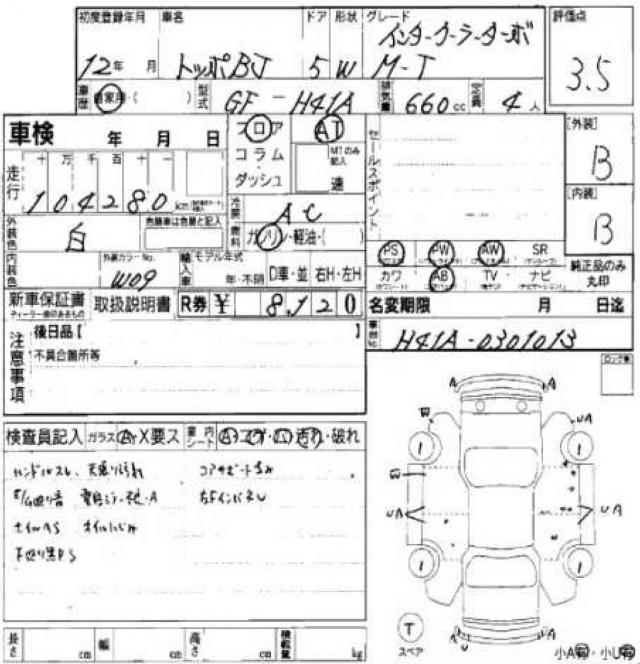 初度登録年月 車名 ドア 形状 グレード 評価点
インタークーラーターボ
12年 月 トッポBJ 5 W M-T 3.5
車歴 自家用・( ) 型式 GF-H41A 排気量 660cc 定員 4人
車検 年 月 日 フロア AT セールスポイント [外装]
コラム MTのみ記入 B
走行 十 万 千 百 十 一 ダッシュ 速
104280 km 冷房 AC [内装]
外装色 白 色替車は色替と記入 燃料 ガソリン・軽油・( ) B
内装色 外装カラーNo. W09 輸入車 モデル年式 年・不明 D車・並 右H・左H
PS PW AW SR 純正品のみ丸印
カワ AB TV ナビ
新車保証書 取扱説明書 R券 ¥ 8,120 名変期限 月 日迄
ディーラー捺印あるもの
注意事項 後日品【 】 車台No. H41A-0301013
不具合箇所等
検査員記入 ガラス A・X要ス 室内シート A・コゲ・穴・汚れ・破れ
ハンドルスレ、天張り汚れ
オイルにじみ
下廻り黒PS
A A
A UA
1 1
UA UA
1 1
T スペア
A A
U
小A有・小U有
長さ cm 幅 cm 高さ cm 積載量 kg